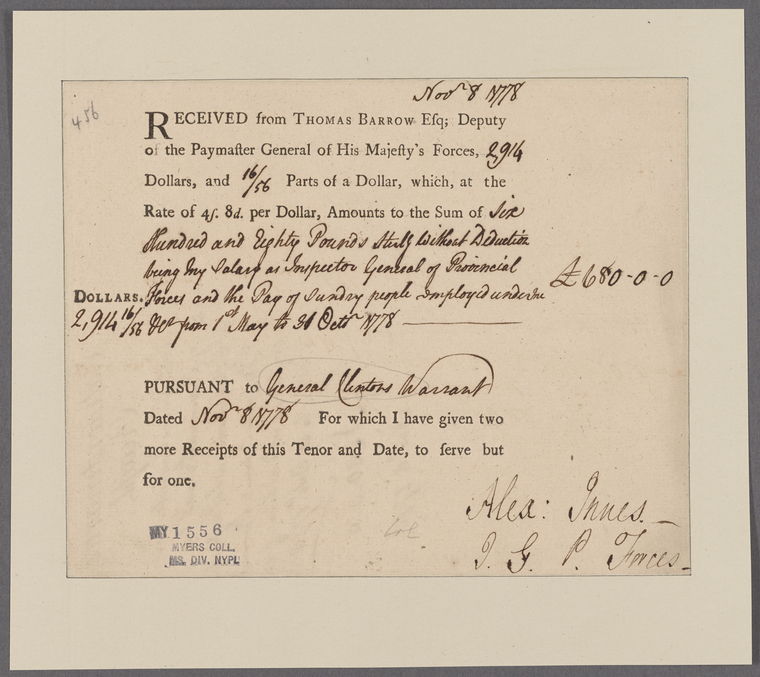 Novr 8 1778
456
RECEIVED from THOMAS BARROW Esq; Deputy
of the Paymaſter General of His Majeſty's Forces, 2,914
Dollars, and 16/56 Parts of a Dollar, which, at the
Rate of 4ſ. 8d. per Dollar, Amounts to the Sum of Six
Hundred and Eighty Pounds Sterlg without Deduction
being my Salary as Inspector General of Provincial
£680-0-0
DOLLARS. Forces and the Pay of Sundry people employed under me
2,914 16/56 &ca from 1st May to 31 Octr 1778
PURSUANT to General Clintons Warrant
Dated Novr 8 1778 For which I have given two
more Receipts of this Tenor and Date, to ſerve but
for one.
Alex: Innes.
I. G. P. Forces
MY 1556
MYERS COLL.
MS. DIV. NYPL